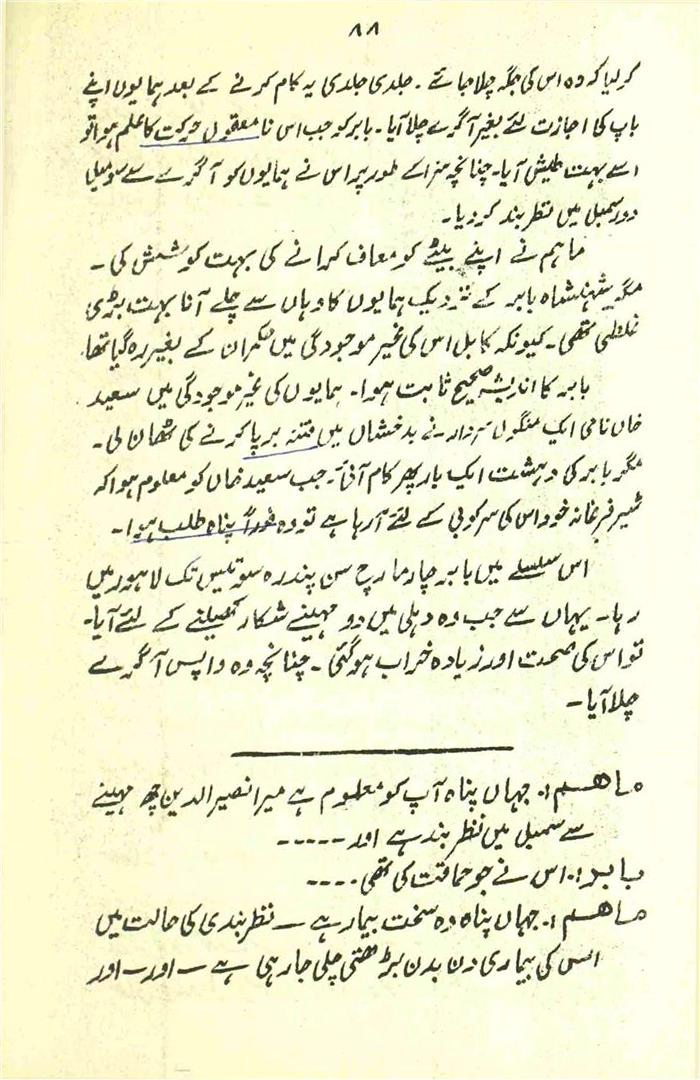 ۸۸
کر لیا کہ وہ اس کی جگہ چلا جائے ۔ جلدی جلدی یہ کام کرنے کے بعد ہمایوں اپنے
باپ کی اجازت لئے بغیر آگرے چلا آیا ۔ بابر کو جب اس نا معقول حرکت کا علم ہوا تو
اسے بہت طیش آیا۔ چنانچہ سزا کے طور پر اس نے ہمایوں کو آگرے سے سو میل
دور سمبل میں نظر بند کر دیا ۔
ماہم نے اپنے بیٹے کو معاف کرانے کی بہت کوشش کی ۔
مگر شہنشاہ بابر کے نزدیک ہمایوں کا وہاں سے چلے آنا بہت بڑی
غلطی تھی ۔ کیونکہ کابل اس کی غیر موجودگی میں حکمران کے بغیر رہ گیا تھا
بابر کا اندیشہ صحیح ثابت ہوا۔ ہمایوں کی غیر موجودگی میں سعید
خاں نامی ایک منگول سردار نے بدخشاں میں فتنہ برپا کرنے کی ٹھان لی ۔
مگر بابر کی دہشت ایک بار پھر کام آئی ۔ جب سعید خاں کو معلوم ہوا کہ
شیر فرغانہ خود اس کی سرکوبی کے لئے آ رہا ہے تو وہ فوراً پناہ طلب ہوا ۔
اس سلسلے میں بابر چار مارچ سن پندرہ سو تیس تک لاہور میں
رہا ۔ یہاں سے جب وہ دہلی میں دو مہینے شکار کھیلنے کے لئے آیا۔
تو اس کی صحت اور زیادہ خراب ہو گئی ۔ چنانچہ وہ واپس آگرے
چلا آیا ۔
ماہم :۔ جہاں پناہ آپ کو معلوم ہے میرا نصیر الدین چھ مہینے
سے سمبل میں نظر بند ہے اور -----
بابر :۔ اس نے جو حماقت کی تھی ----
ماہم :۔ جہاں پناہ وہ سخت بیمار ہے — نظر بندی کی حالت میں
اس کی بیماری دن بدن بڑھتی چلی جا رہی ہے — اور — اور